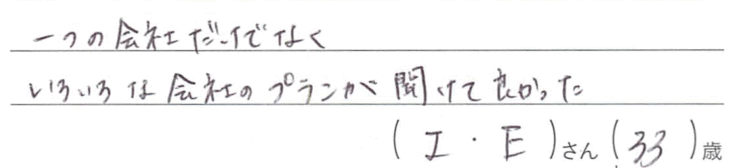 一つの会社だけでなく
いろいろな会社のプランが聞けて良かった
(I・E)さん(33)歳